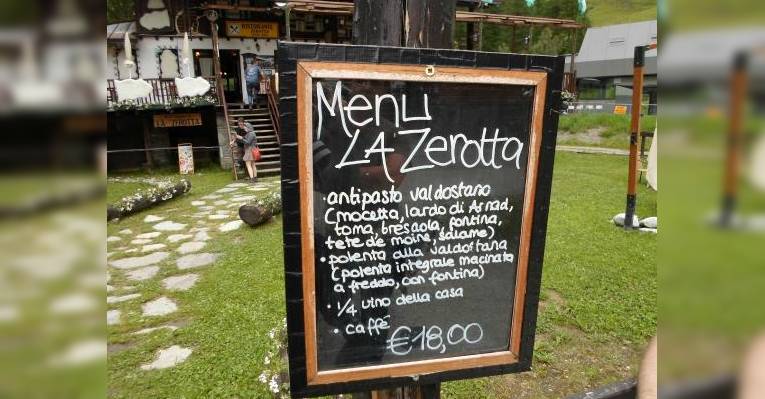 RISTORANTE
LA ZEROTTA
Menu
LA Zerotta
• antipasto valdostano
(mocetta, lardo di Arnad,
toma, bresaola, fontina,
tete de moine, salame)
• polenta alla valdostana
(polenta integrale macinata
a freddo, con fontina)
• 1/4 vino della casa
• caffé
€18,00